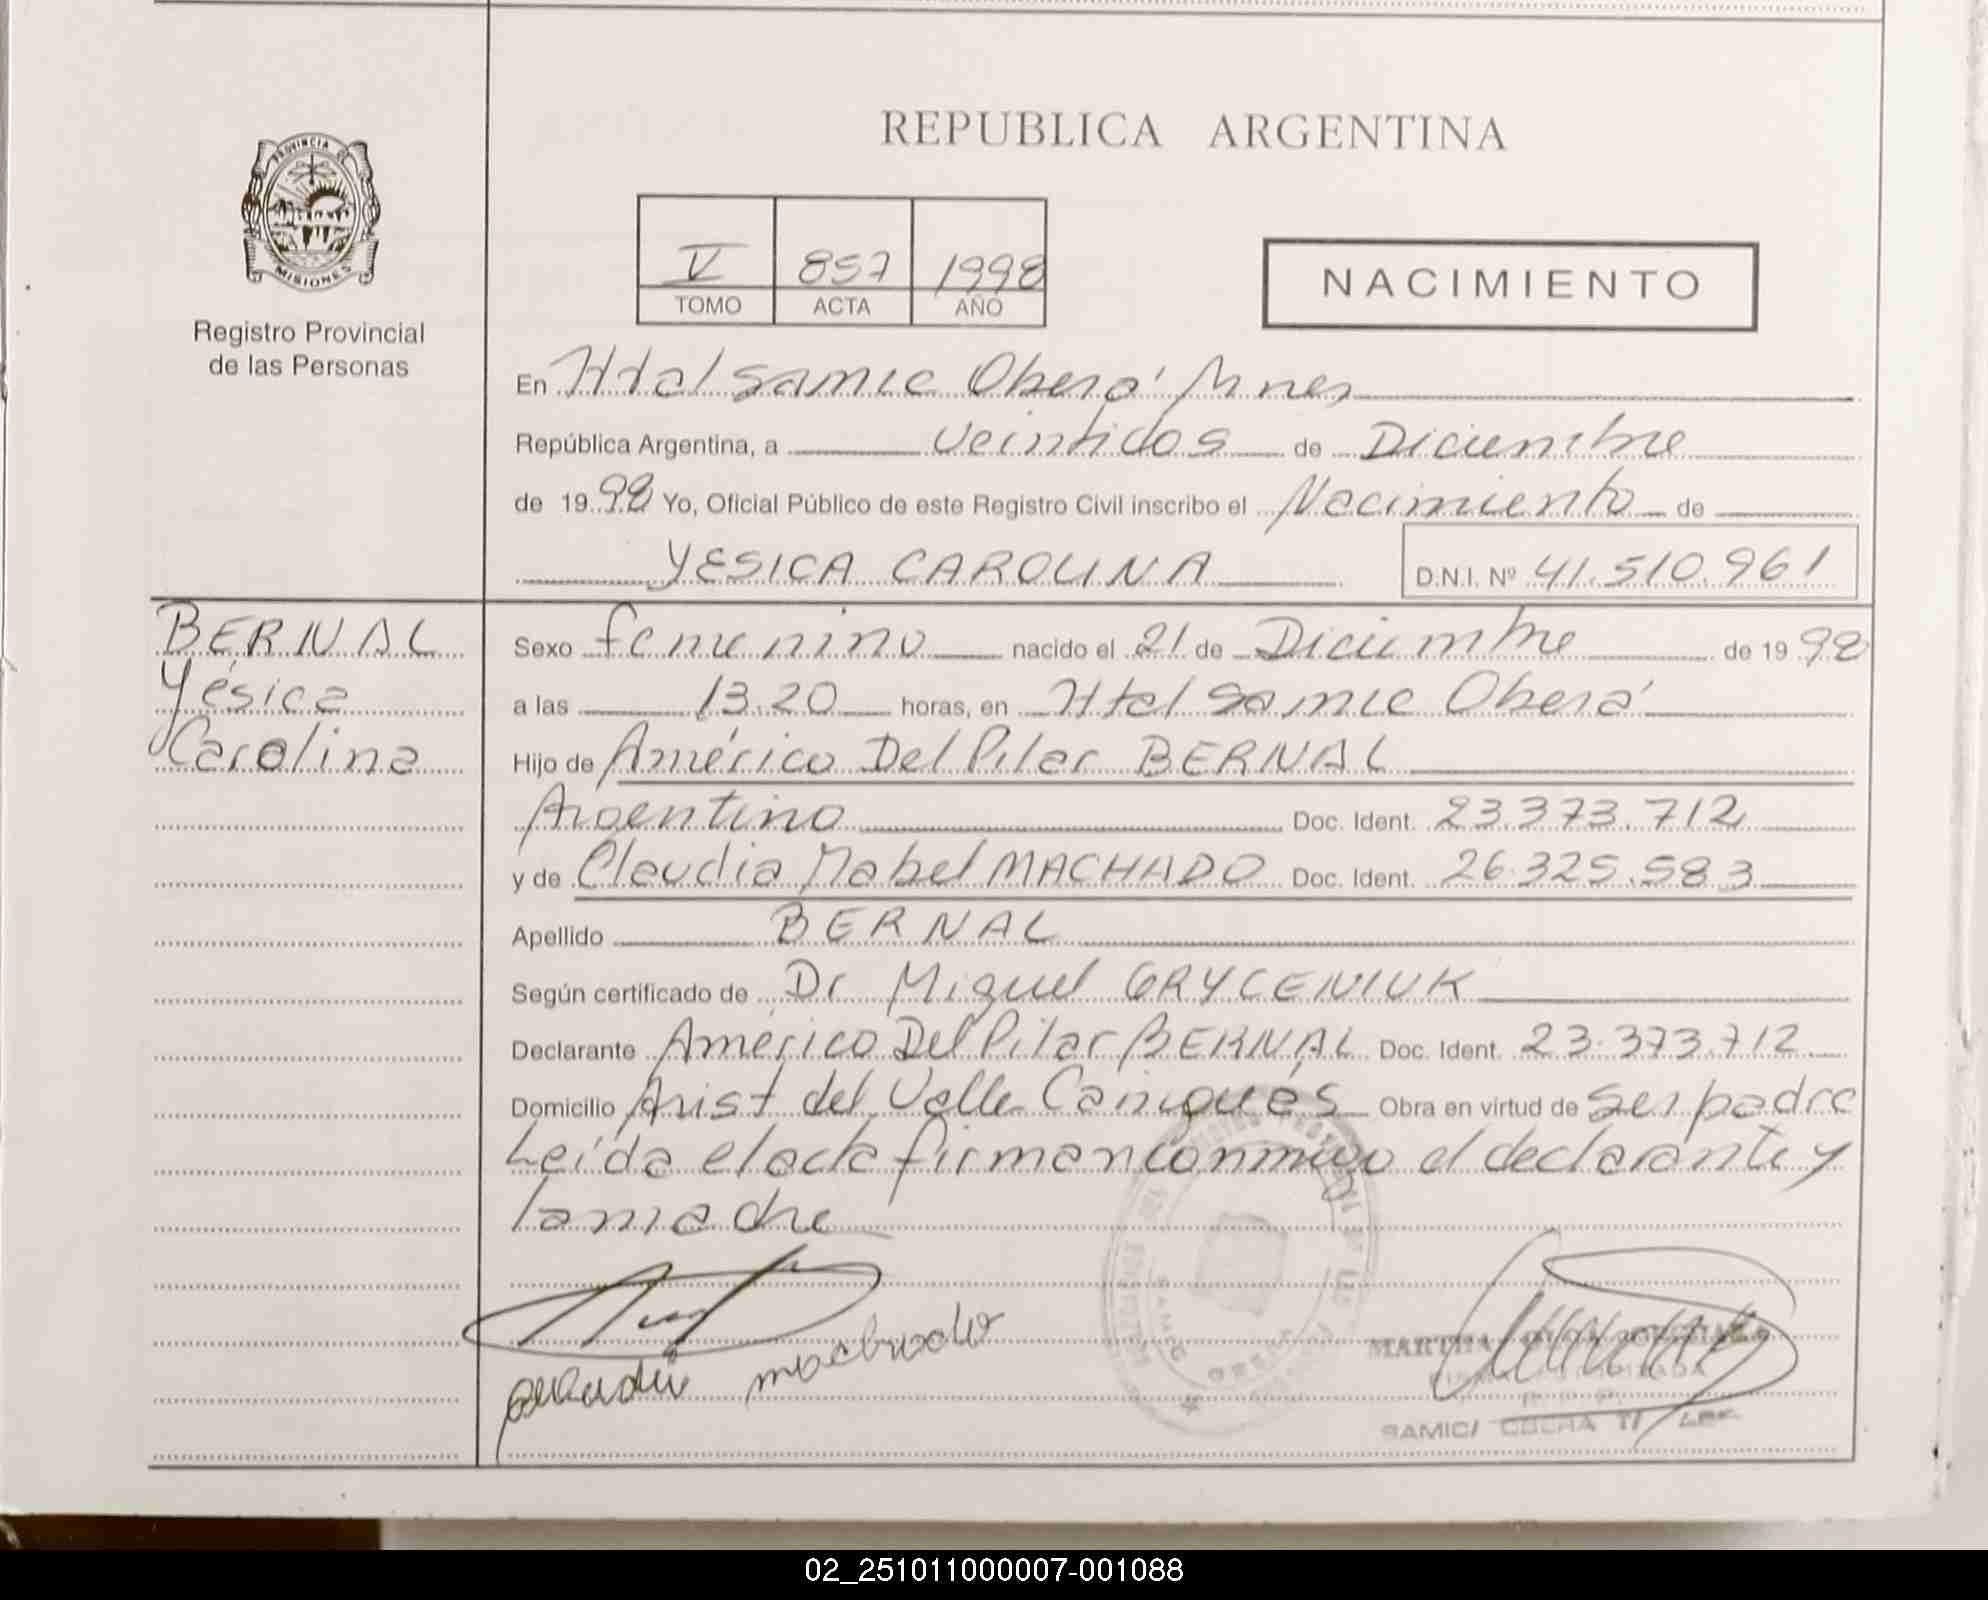 REPUBLICA ARGENTINA
PROVINCIA DE
MISIONES
Registro Provincial
de las Personas
V 857 1998
TOMO ACTA AÑO
NACIMIENTO
En Htal Samic Oberá Mnes
República Argentina, a veintidos de Diciembre
de 1998 Yo, Oficial Público de este Registro Civil inscribo el Nacimiento de
YESICA CAROLINA D.N.I. Nº 41.510.961
BERNAL
Yésica
Carolina
Sexo femenino nacido el 21 de Diciembre de 1998
a las 13.20 horas, en Htal Samic Oberá
Hijo de Américo Del Pilar BERNAL
Argentino Doc. Ident. 23.373.712
y de Claudia Mabel MACHADO Doc. Ident. 26.325.583
Apellido BERNAL
Según certificado de Dr Miguel GRYCENIUK
Declarante Américo Del Pilar BERNAL Doc. Ident. 23.373.712
Domicilio Arist del Valle Caingués Obra en virtud de ser padre
Leída el acta firman conmigo el declarante y
la madre
machado
MARTHA
SAMIC/
02_251011000007-001088